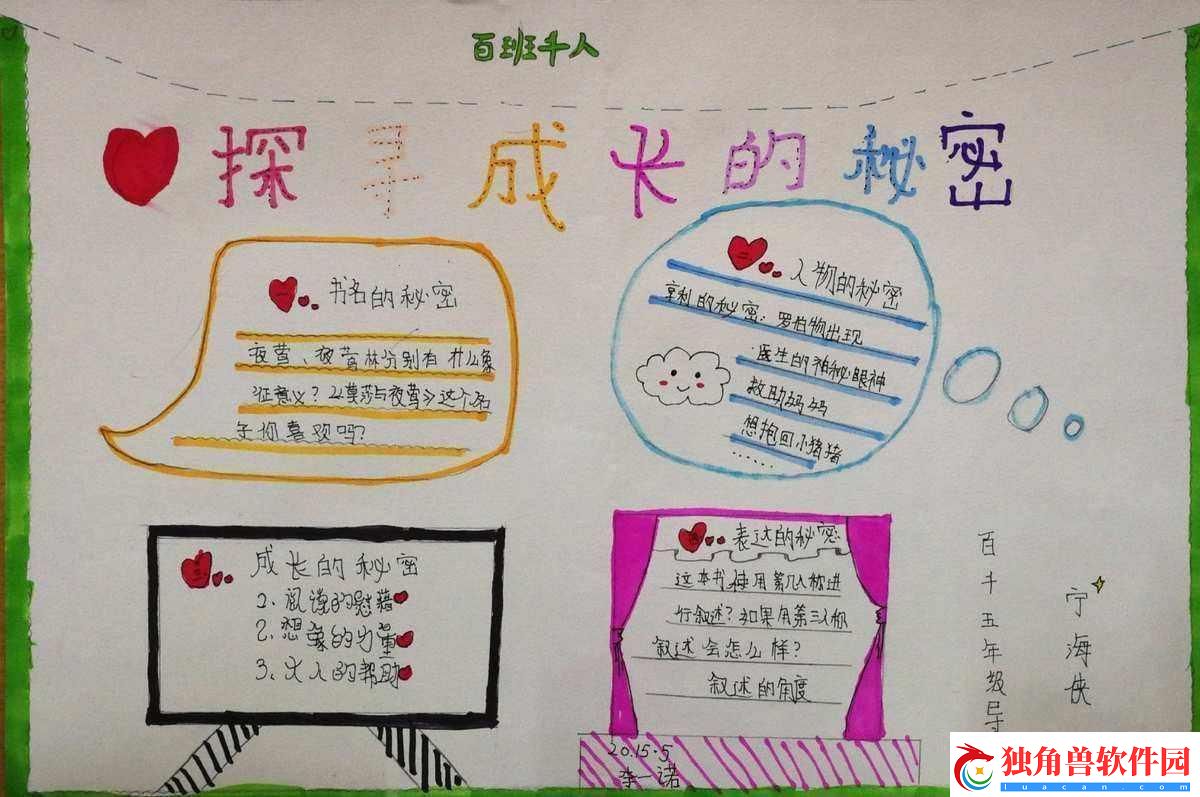 百班千人
探寻成长的秘密
一
书名的秘密
夜莺、夜莺林分别有什么象
征意义？《莫莎与夜莺》这个名
字你喜欢吗？
二
人物的秘密
亨利的秘密：罗柏物出现
医生的神秘眼神
救助妈妈
想抱回小猪猪
......
三
成长的秘密
1、阅读的慰藉
2、想象的力量
3、大人的帮助
四
表达的秘密
这本书使用第几人称进
行叙述？如果用第三人称
叙述会怎么样？
叙述的角度
2015.5
李一诺
百千五年级导
宁海侠
独角兽软件园
luacan.com